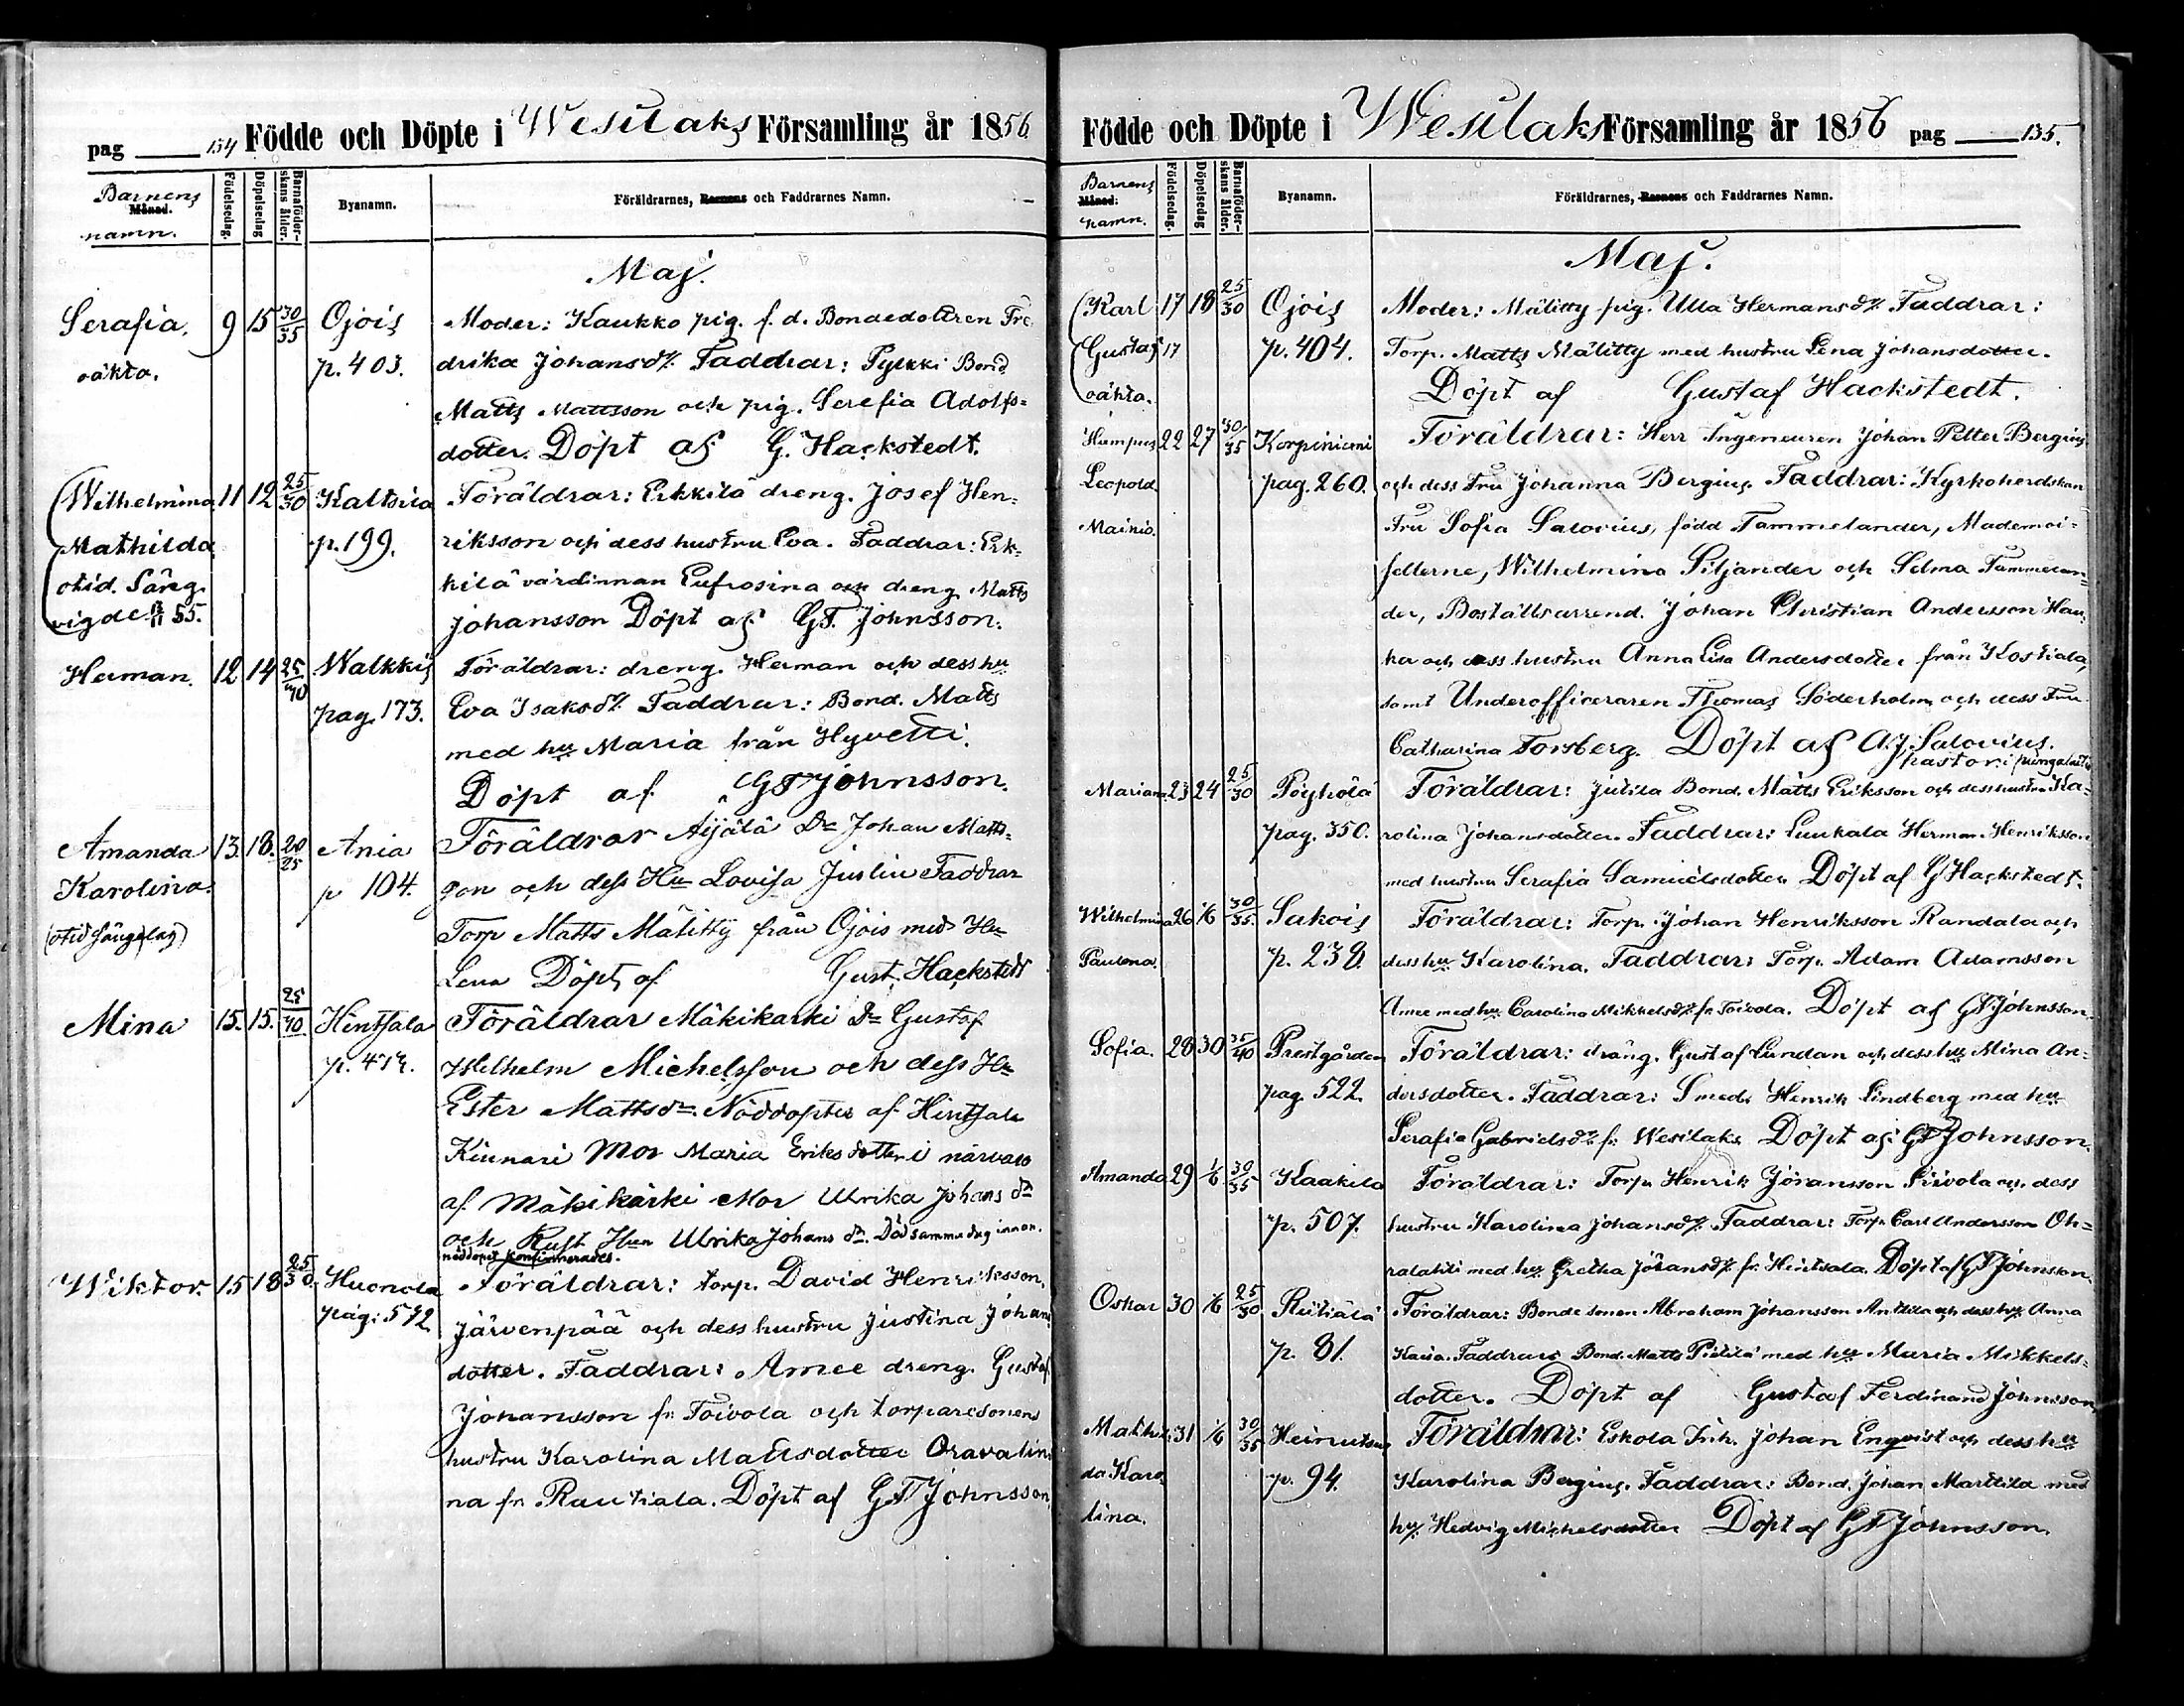 pag 134 Födde och Döpte i Wesilaks Församling år 1856
Barnens Månad. namn.
Födelsedag.
Döpelsedag
Barnaföder-skans ålder.
Byanamn.
Föräldrarnes, Barnens och Faddrarnes Namn.
Maj.
Serafia. 9 15 30/35 Ojois Moder: Kaukko pig. f. d. Bondedottren Fre
oäkta. p. 403. drika Johansdr. Faddrar: Pyrkki Bond
Matts Mattsson och pig. Serefia Adolfs=
dotter. Döpt af G. Hackstedt.
Wilhelmina 11 12 25/30 Kaltsila Föräldrar: Erkkilä dreng. Josef Hen-
Mathilda p. 199. riksson och dess hustru Eva. Faddrar: Erk-
otid. Säng. kilä värdinnan Eufrosina och dreng. Matts
vigde 55. Johansson Döpt af GF. Johnsson.
Herman. 12 14 25/40 Walkkis Föräldrar: dreng. Herman och dess hu
pag. 173. Eva Isaksdr. Faddrar: Bond. Matts
med hu Maria från Hyvetti.
Döpt af GF Johnsson.
Amanda 13. 18. 20/25 Ania Föräldrar Äijälä Dr Johan Matts-
Karolina. p 104. son och dess Hu Lovisa Juslin Faddrar
(otid sängelag) Torp Matts Mälitty från Ojois med Hu
Lena Döpt af Gust. Hackstedt
Mina 15. 15. 25/40. Hintsala Föräldrar Mäkikärki Dr Gustaf
p. 474. Wilhelm Michelsson och dess Hu
Ester Mattsdr. Nöddöptes af Hintsala
Kinnari Mor Maria Eriksdotter i närvaro
af Mäkikärki Mor Ulrika Johansdr
och Rust. Hun Ulrika Johansdr. Död samma dag innan
nöddopet konfirmerades.
Wiktor. 15 18 25/30. Huonola Föräldrar: torp. David Henriksson,
pag: 572 Järvenpää och dess hustru Justina Johans
dotter. Faddrar: Amee dreng. Gustaf
Johansson fr. Toivola och torparesonens
hustru Karolina Mattsdotter Oravalin
na fr. Rautiala. Döpt af GF Johnsson
Födde och Döpte i Wesilaks Församling år 1856 pag 135.
Barnens Månad. namn.
Födelsedag.
Döpelsedag
Barnaföder-skans ålder.
Byanamn.
Föräldrarnes, Barnens och Faddrarnes Namn.
Maj.
Karl 17 18 25/30 Ojois Moder: Mälitty pig. Ulla Hermansdr. Faddrar:
Gustaf 17 p. 404. Torp. Matts Mälitty med hustru Lena Johansdotter.
oäkta. Döpt af Gustaf Hackstedt.
Hampus 22 27 30/35 Korpiniemi Föräldrar: Herr Ingeneuren Johan Petter Bergius
Leopold pag. 260. och dess Fru Johanna Bergius. Faddrar: Kyrkoherdskan
Mainio. Fru Sofia Salovius, född Tammelander, Mademoi=
sellerne, Wilhelmina Siljander och Selma Tammelan=
der, Boställsarrend. Johan Christian Andersson Hau
ka och dess hustru Anna Lisa Andersdotter från Kostiala,
samt Underofficeraren Thomas Söderholm och dess Fru
Catharina Forsberg. Döpt af A.J. Salovius.
pastor i pungalaitio
Mariana 23 24 25/30 Pöyhölä Föräldrar: Jutila Bond. Matts Eriksson och dess hustru Ka-
pag. 350. rolina Johansdotter. Faddrar: Luukala Herman Henriksson
med hustru Serafia Samuelsdotter. Döpt af G Hackstedt.
Wilhelmina 26 1/6 30/35. Sakois Föräldrar: Torp. Johan Henriksson Randala och
Paulena. p. 238. dess hu Karolina. Faddrar: Torp. Adam Adamsson
Amee med hu Carolina Mikkelsdr. fr. Toivola. Döpt af GF Johnsson.
Sofia. 28 30 35/40 Prestgården Föräldrar: dräng. Gustaf Lundan och dess hu Mina An-
pag. 522. dersdotter. Faddrar: Smed. Henrik Lindberg med hu
Serafia Gabrielsdr. fr. Wesilaks. Döpt af GF Johnsson.
Amanda 29 1/6 30/35 Kaakila Föräldrar: Torp. Henrik Jöransson Siivola och dess
p. 507. hustru Karolina Johansdr. Faddrar: Torp. Carl Andersson Oh=
ralahti med hu Gretha Jöransdr. fr. Hintsala. Döpt af GF Johnsson.
Oskar 30 1/6 25/30 Riitiälä Föräldrar: Bondesonen Abraham Johansson Anttila och dess hu Anna
p. 81. Kaisa. Faddrar: Bond. Matts Pietilä med hu Maria Mikkels-
dotter. Döpt af Gustaf Ferdinand Johnsson
Mathil- 31 1/6 30/35 Heinutsu Föräldrar: Eskola Inh. Johan Enqvist och dess hu
da Karo p. 94. Karolina Bergius. Faddrar: Bond. Johan Marttila med
lina. hu Hedvig Michelsdotter Döpt af GF Johnsson.